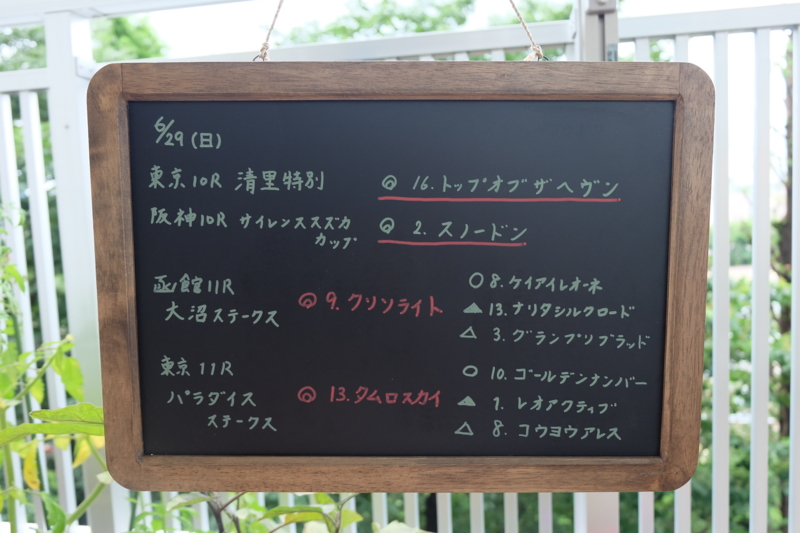 6/29(日)
東京10R 清里特別 ◎ 16.トップオブザヘヴン
阪神10R サイレンススズカ
カップ ◎ 2.スノードン
函館11R
大沼ステークス ◎ 9.クリソライト
○ 8.ケイアイレオーネ
▲ 13.ナリタシルクロード
△ 3.グランプリブラッド
東京11R
パラダイス
ステークス ◎ 13.タムロスカイ
○ 10.ゴールデンナンバー
▲ 1.レオアクティブ
△ 8.コウヨウアレス